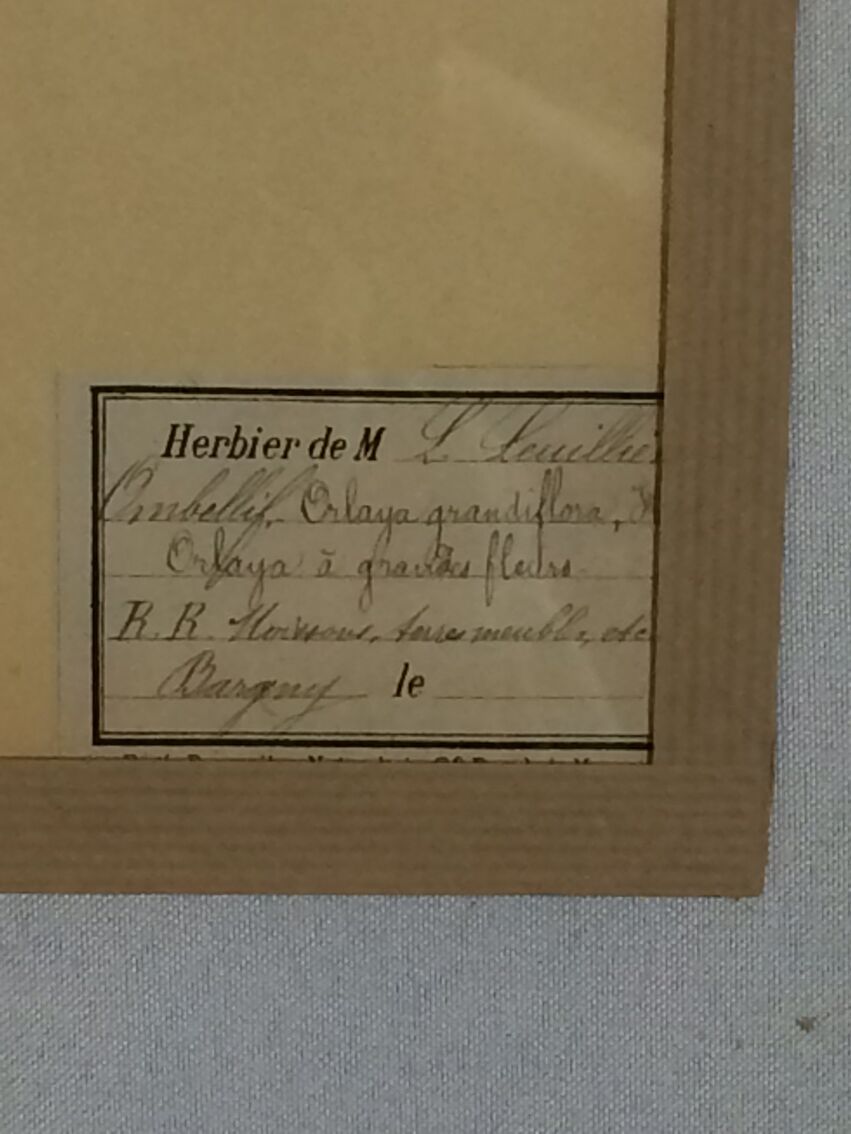 Herbier de M L.
Ombellif. Orlaya grandiflora,
Orlaya à grandes fleurs
R. R. Moissons, terres meubles, etc
Bargny le